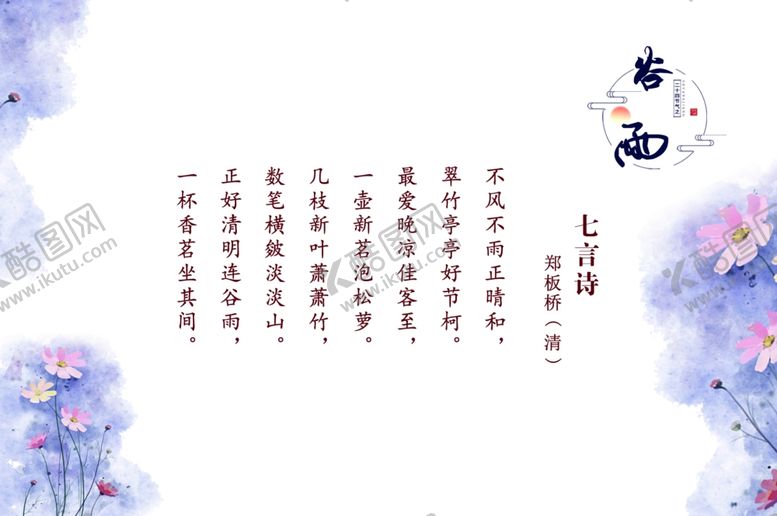 谷雨
二十四节气之
七言诗
郑板桥（清）
不风不雨正晴和，
翠竹亭亭好节柯。
最爱晚凉佳客至，
一壶新茗泡松萝。
几枝新叶萧萧竹，
数笔横皴淡淡山。
正好清明连谷雨，
一杯香茗坐其间。
酷图网
www.ikutu.com
酷图网
www.ikutu.com
酷图网
www.ikutu.com
酷图网
www.ikutu.com